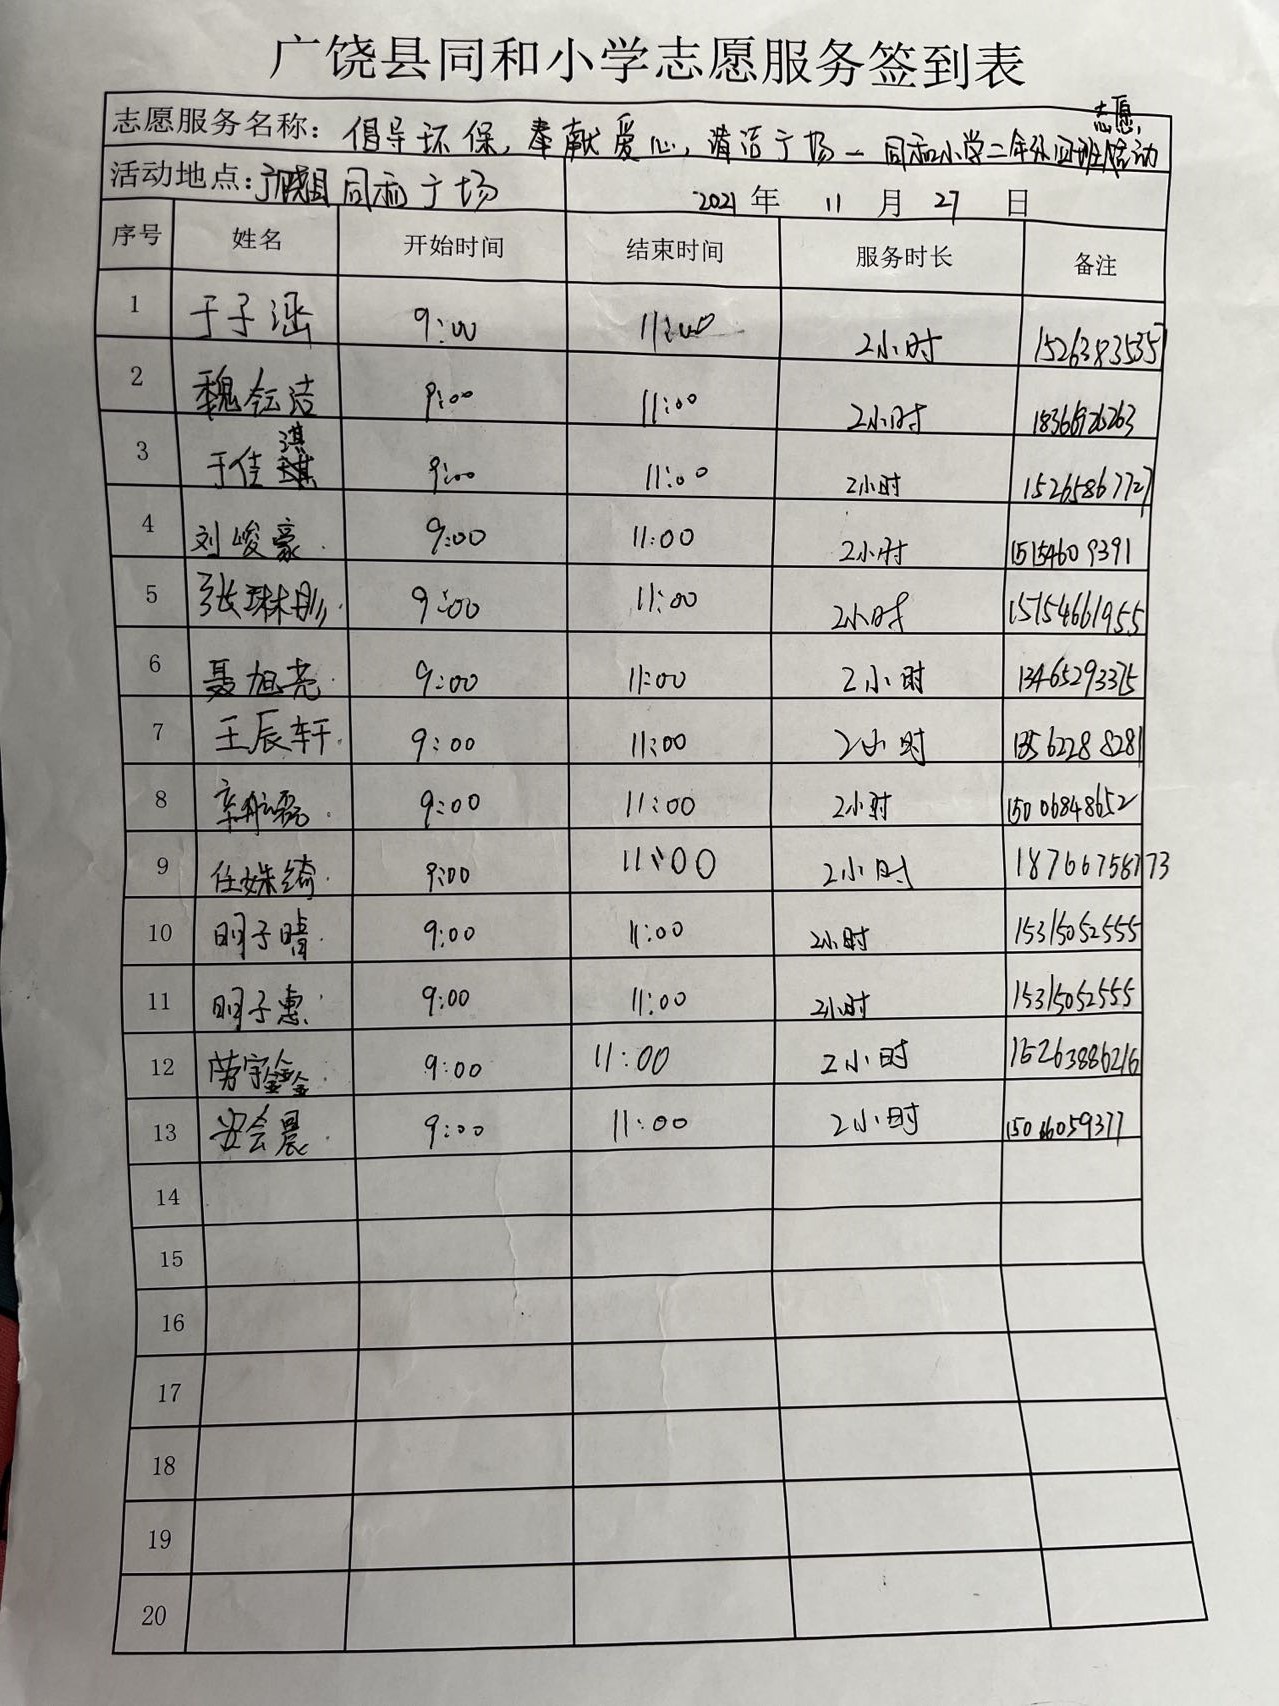 广饶县同和小学志愿服务签到表
志愿服务名称：倡导环保，奉献爱心，清洁广场—同和小学二年级四班志愿活动
活动地点：广饶县同和广场 2021年 11月 27日
序号 姓名 开始时间 结束时间 服务时长 备注
1 于子涵 9:00 11:00 2小时 15263835357
2 魏 洁 9:00 11:00 2小时
3 于佳淇 9:00 11:00 2小时 15265867727
4 刘峻豪 9:00 11:00 2小时 15154609391
5 张琳彤 9:00 11:00 2小时 15154661955
6 聂旭尧 9:00 11:00 2小时 13465293375
7 王辰轩 9:00 11:00 2小时 13562288281
8 9:00 11:00 2小时 15006848652
9 任姝绮 9:00 11:00 2小时 18766758773
10 明子晴 9:00 11:00 2小时 15315052555
11 明子惠 9:00 11:00 2小时 15315052555
12 宇鑫 9:00 11:00 2小时 15263886216
13 安会晨 9:00 11:00 2小时
14
15
16
17
18
19
20